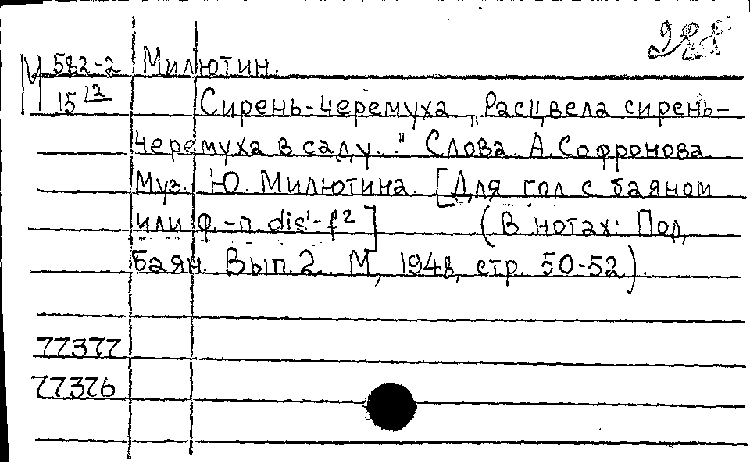 288
М 582-2 Милютин.
15 12 Сирень-черемуха „Расцвела сирень-
черемуха в саду..." Слова А. Софронова
Муз. Ю. Милютина. [Для гол с баяном
или ф.-п. dis¹-f²] (В нотах: Под
баян. Вып. 2. М, 1948, стр. 50-52).
77377
77376